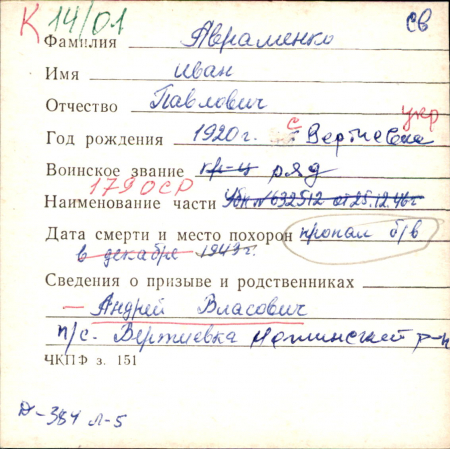 К 14/01 СВ
Фамилия Авраменко
Имя Иван
Отчество Павлович
укр
Год рождения 1920 г. с Вертиевка
Воинское звание кр-ц ряд
179 ОСР
Наименование части №632512 от 25.12.46 г
Дата смерти и место похорон пропал б/в
в декабре 1943 г.
Сведения о призыве и родственниках
— Андрей Власович
п/с. Вертиевка р-н
ЧКПФ з. 151
Д-384 л-5